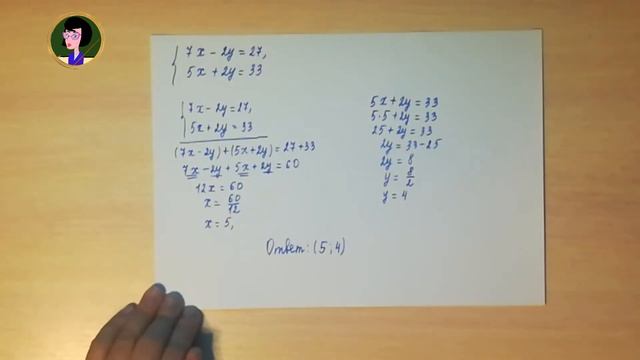 7x - 2y = 27,
5x + 2y = 33
7x - 2y = 27,
5x + 2y = 33
(7x - 2y) + (5x + 2y) = 27 + 33
7x - 2y + 5x + 2y = 60
12x = 60
x = 60/12
x = 5,
5x + 2y = 33
5·5 + 2y = 33
25 + 2y = 33
2y = 33 - 25
2y = 8
y = 8/2
y = 4
Ответ: (5; 4)